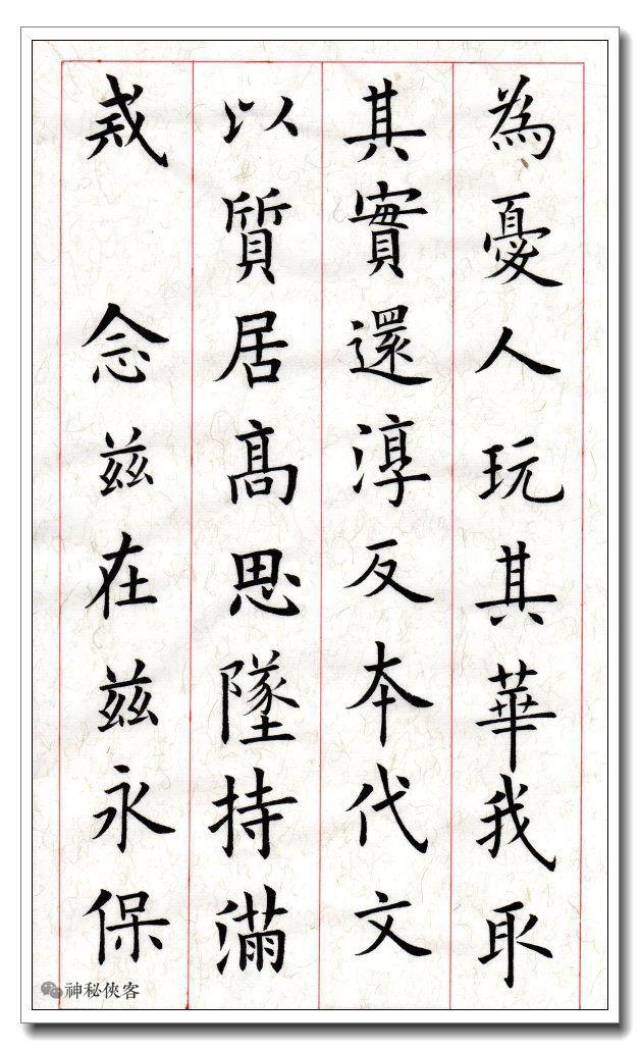 為憂人玩其華我取
其實還淳反本代文
以質居高思墜持滿
戒 念茲在茲永保
神秘俠客